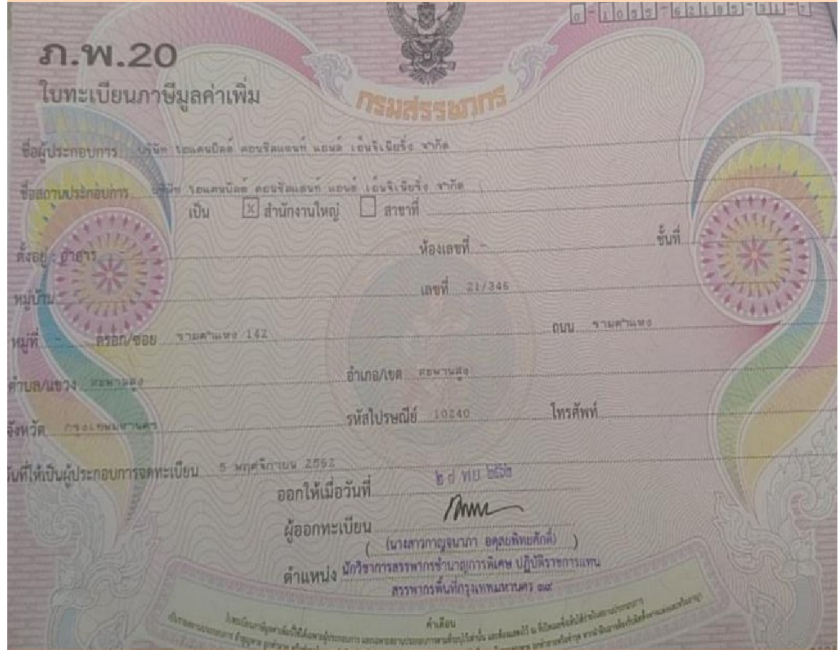 0-1055-62185-31-7
ภ.พ.20
ใบทะเบียนภาษีมูลค่าเพิ่ม
กรมสรรพากร
ชื่อผู้ประกอบการ บริษัท ไอแคนบิลด์ คอนซัลแตนท์ แอนด์ เอ็นจิเนียริ่ง จำกัด
ชื่อสถานประกอบการ บริษัท ไอแคนบิลด์ คอนซัลแตนท์ แอนด์ เอ็นจิเนียริ่ง จำกัด
เป็น X สำนักงานใหญ่ สาขาที่
ตั้งอยู่ : อาคาร - ห้องเลขที่ - ชั้นที่
หมู่บ้าน เลขที่ 21/346
หมู่ที่ - ตรอก/ซอย รามคำแหง 142 ถนน รามคำแหง
ตำบล/แขวง สะพานสูง อำเภอ/เขต สะพานสูง
จังหวัด กรุงเทพมหานคร รหัสไปรษณีย์ 10240 โทรศัพท์
วันที่ให้เป็นผู้ประกอบการจดทะเบียน 5 พฤศจิกายน 2562
ออกให้เมื่อวันที่ พ.ย. ๒๕๖๒
ผู้ออกทะเบียน
(นางสาวกาญจนาภา)
ตำแหน่ง นักวิชาการสรรพากรชำนาญการพิเศษ ปฏิบัติราชการแทน
สรรพากรพื้นที่กรุงเทพมหานคร ๑๙
คำเตือน